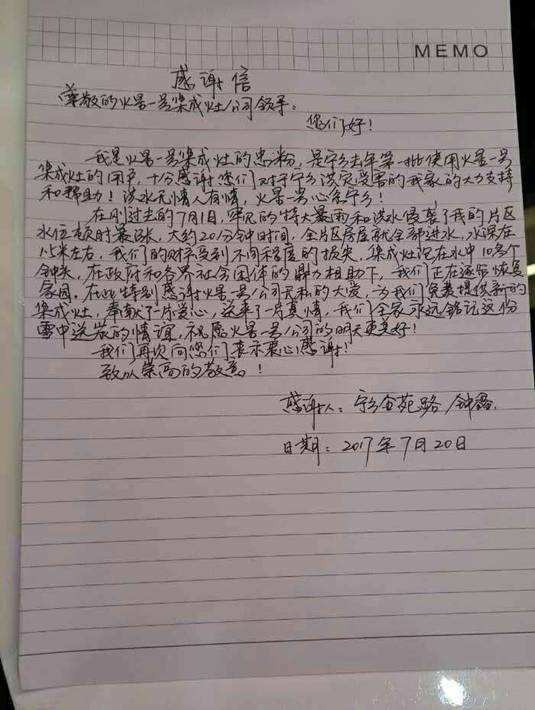 MEMO
感谢信
尊敬的火星一号集成灶公司领导：
您们好！
我是火星一号集成灶的忠粉，是宁乡去年第一批使用火星一号
集成灶的用户，十分感谢您们对于宁乡洪灾受害的我家的大力支持
和帮助！洪水无情人有情，火星一号心系宁乡！
在刚过去的7月1日，罕见的特大暴雨和洪水侵袭了我的片区
水位顿时暴涨，大约20分钟时间，全片区房屋就全部进水，水深在
1.5米左右，我们的财产受到不同程度的损失，集成灶泡在水中10多个
钟头，在政府和各界社会团体的鼎力相助下，我们正在逐步恢复
家园。在此特别感谢火星一号公司无私的大爱，为我们免费提供新的
集成灶，奉献了一片爱心，送来了一片真情，我们全家永远铭记这份
雪中送炭的情谊，祝愿火星一号公司的明天更美好！
我们再次向您们表示衷心感谢！
致以崇高的敬意！
感谢人：宁乡金苑路 钟
日期：2017年7月20日